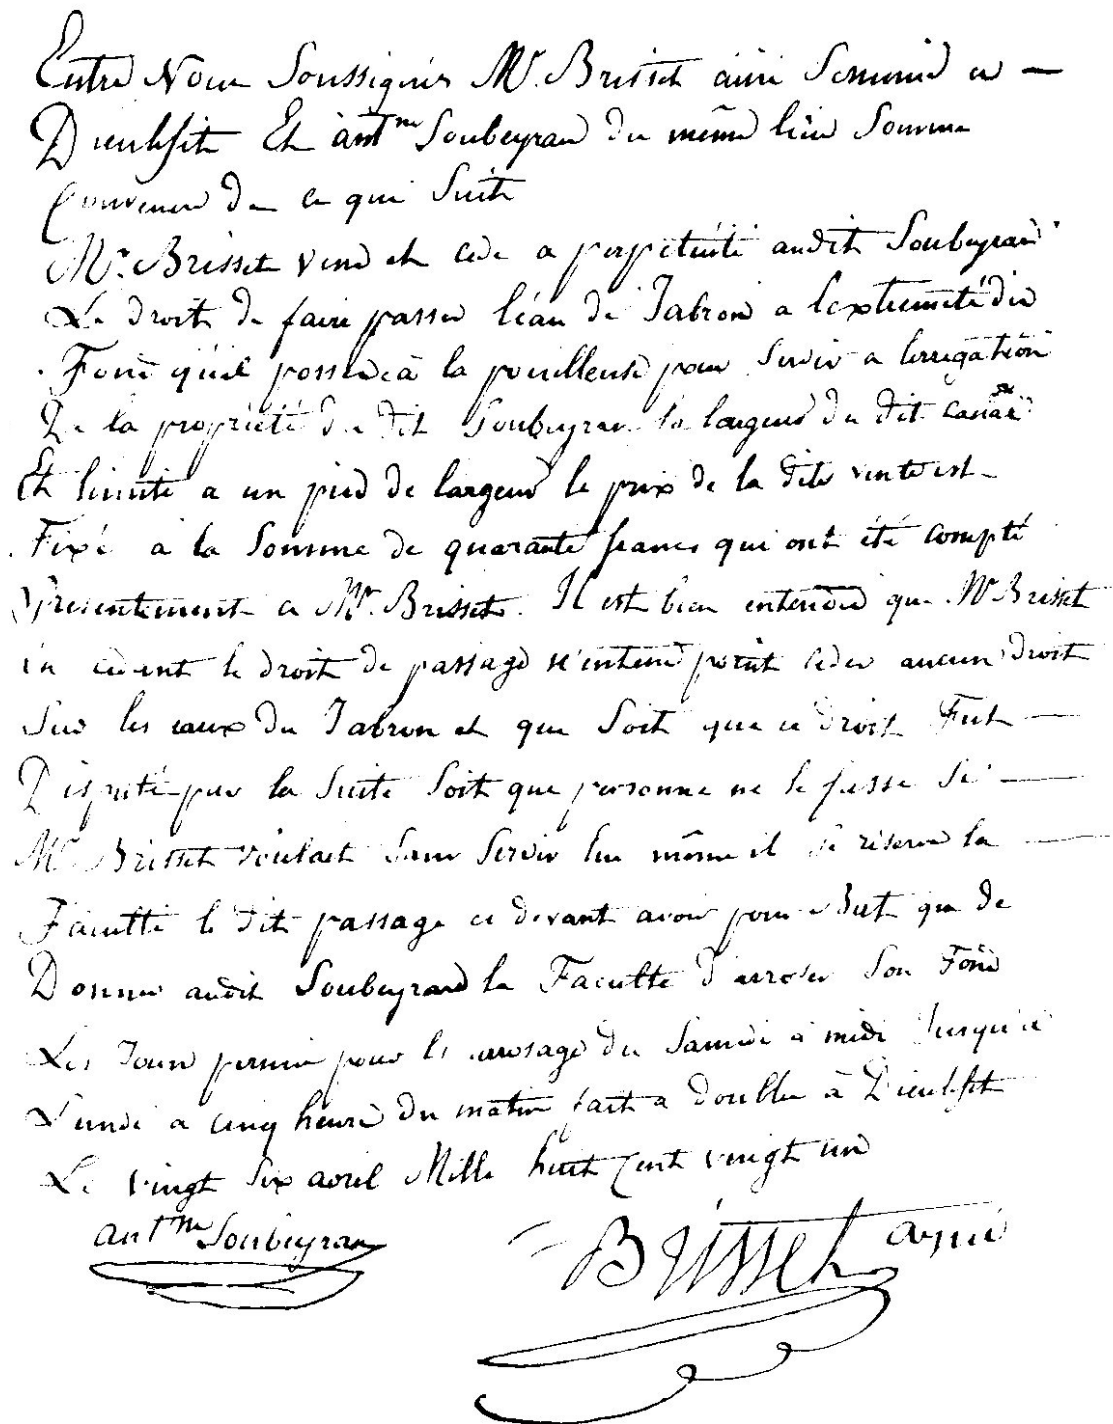 Entre Nous Soussignés Mr. Brisset ainé Domicilié a —
Dieulefit Et antme Soubeyran du même lieu Sommes
Convenus de ce qui Suit
Mr. Brisset vend et cede a perpetuité audit Soubeyrand
Le droit de faire passer l'éau de Jabron a lextremité du
Fond qu'il possede à la pouilleuse pour Servir a lirrigation
De la propriété du dit Soubeyran la largeur du dit canal
Et limité a un pied de largeur le prix de la dite vente est
Fixé a la Somme de quarante francs qui ont été compté
Presentement a Mr. Brisset. Il est bien entendu que Mr Brisset
en cedent le droit de passage n'entend point ceder aucun droit
Sur les eaux du Jabron et que Soit que ce droit Fut —
Disputé par la Suite Soit que personne ne le fasse Si —
Mr. Brisset voulait Sans Servir lui même il se réserve la —
Faculté le dit passage ci devant avoir pour But que de
Donner audit Soubeyrand la Faculté d'arroser Son Fond
Les Jours permis pour le arrosage du Samedi à midi Jusqu'a
Lundi a cinq heure du matin fait a double à Dieulefit
Le vingt Six avril Mille huit Cent vingt un
antme Soubeyran
Brisset ayné